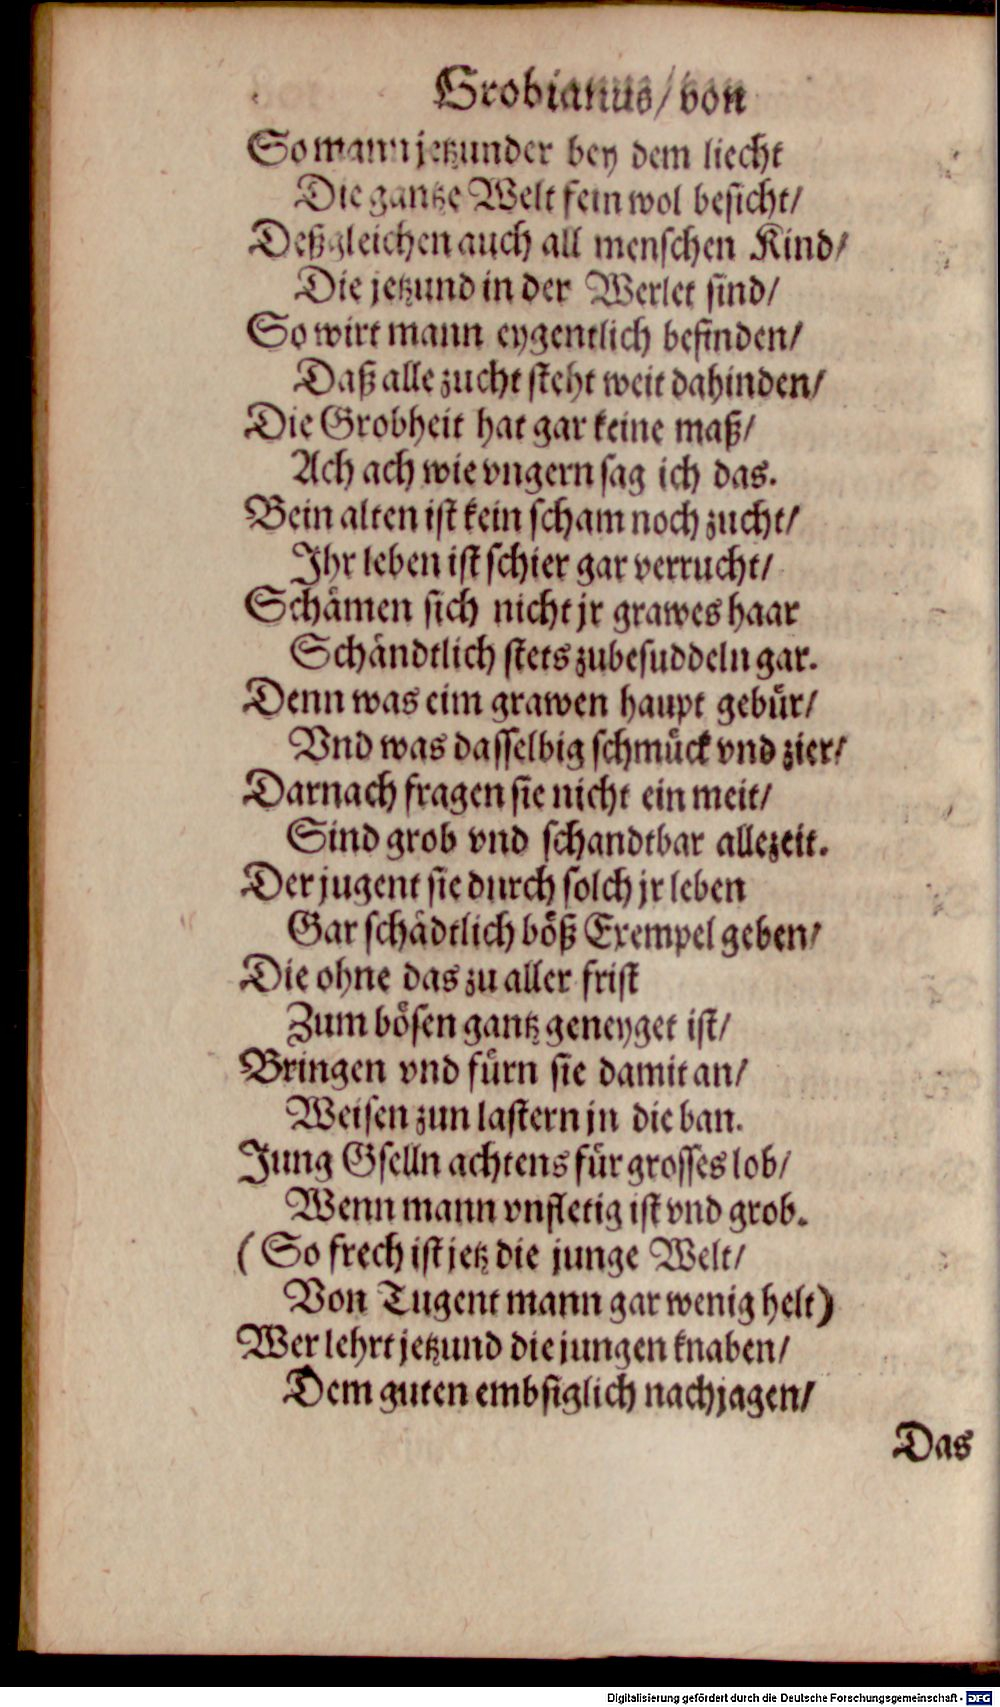 Grobianus/ von
So mann jetzunder bey dem liecht
Die gantze Welt fein wol besicht/
Deßgleichen auch all menschen Kind/
Die jetzund in der Werlet sind/
So wirt mann eygentlich befinden/
Daß alle zucht steht weit dahinden/
Die Grobheit hat gar keine maß/
Ach ach wie vngern sag ich das.
Bein alten ist kein scham noch zucht/
Ihr leben ist schier gar verrucht/
Schämen sich nicht jr grawes haar
Schändtlich stets zubesuddeln gar.
Denn was eim grawen haupt gebür/
Vnd was dasselbig schmück vnd zier/
Darnach fragen sie nicht ein meit/
Sind grob vnd schandtbar allezeit.
Der jugent sie durch solch jr leben
Gar schädtlich böß Exempel geben/
Die ohne das zu aller frist
Zum bösen gantz geneyget ist/
Bringen vnd fürn sie damit an/
Weisen zun lastern jn die ban.
Jung Gselln achtens für grosses lob/
Wenn mann vnfletig ist vnd grob.
(So frech ist jetz die junge Welt/
Von Tugent mann gar wenig helt)
Wer lehrt jetzund die jungen knaben/
Dem guten embsiglich nachjagen/
Das
Digitalisierung gefördert durch die Deutsche Forschungsgemeinschaft - DFG